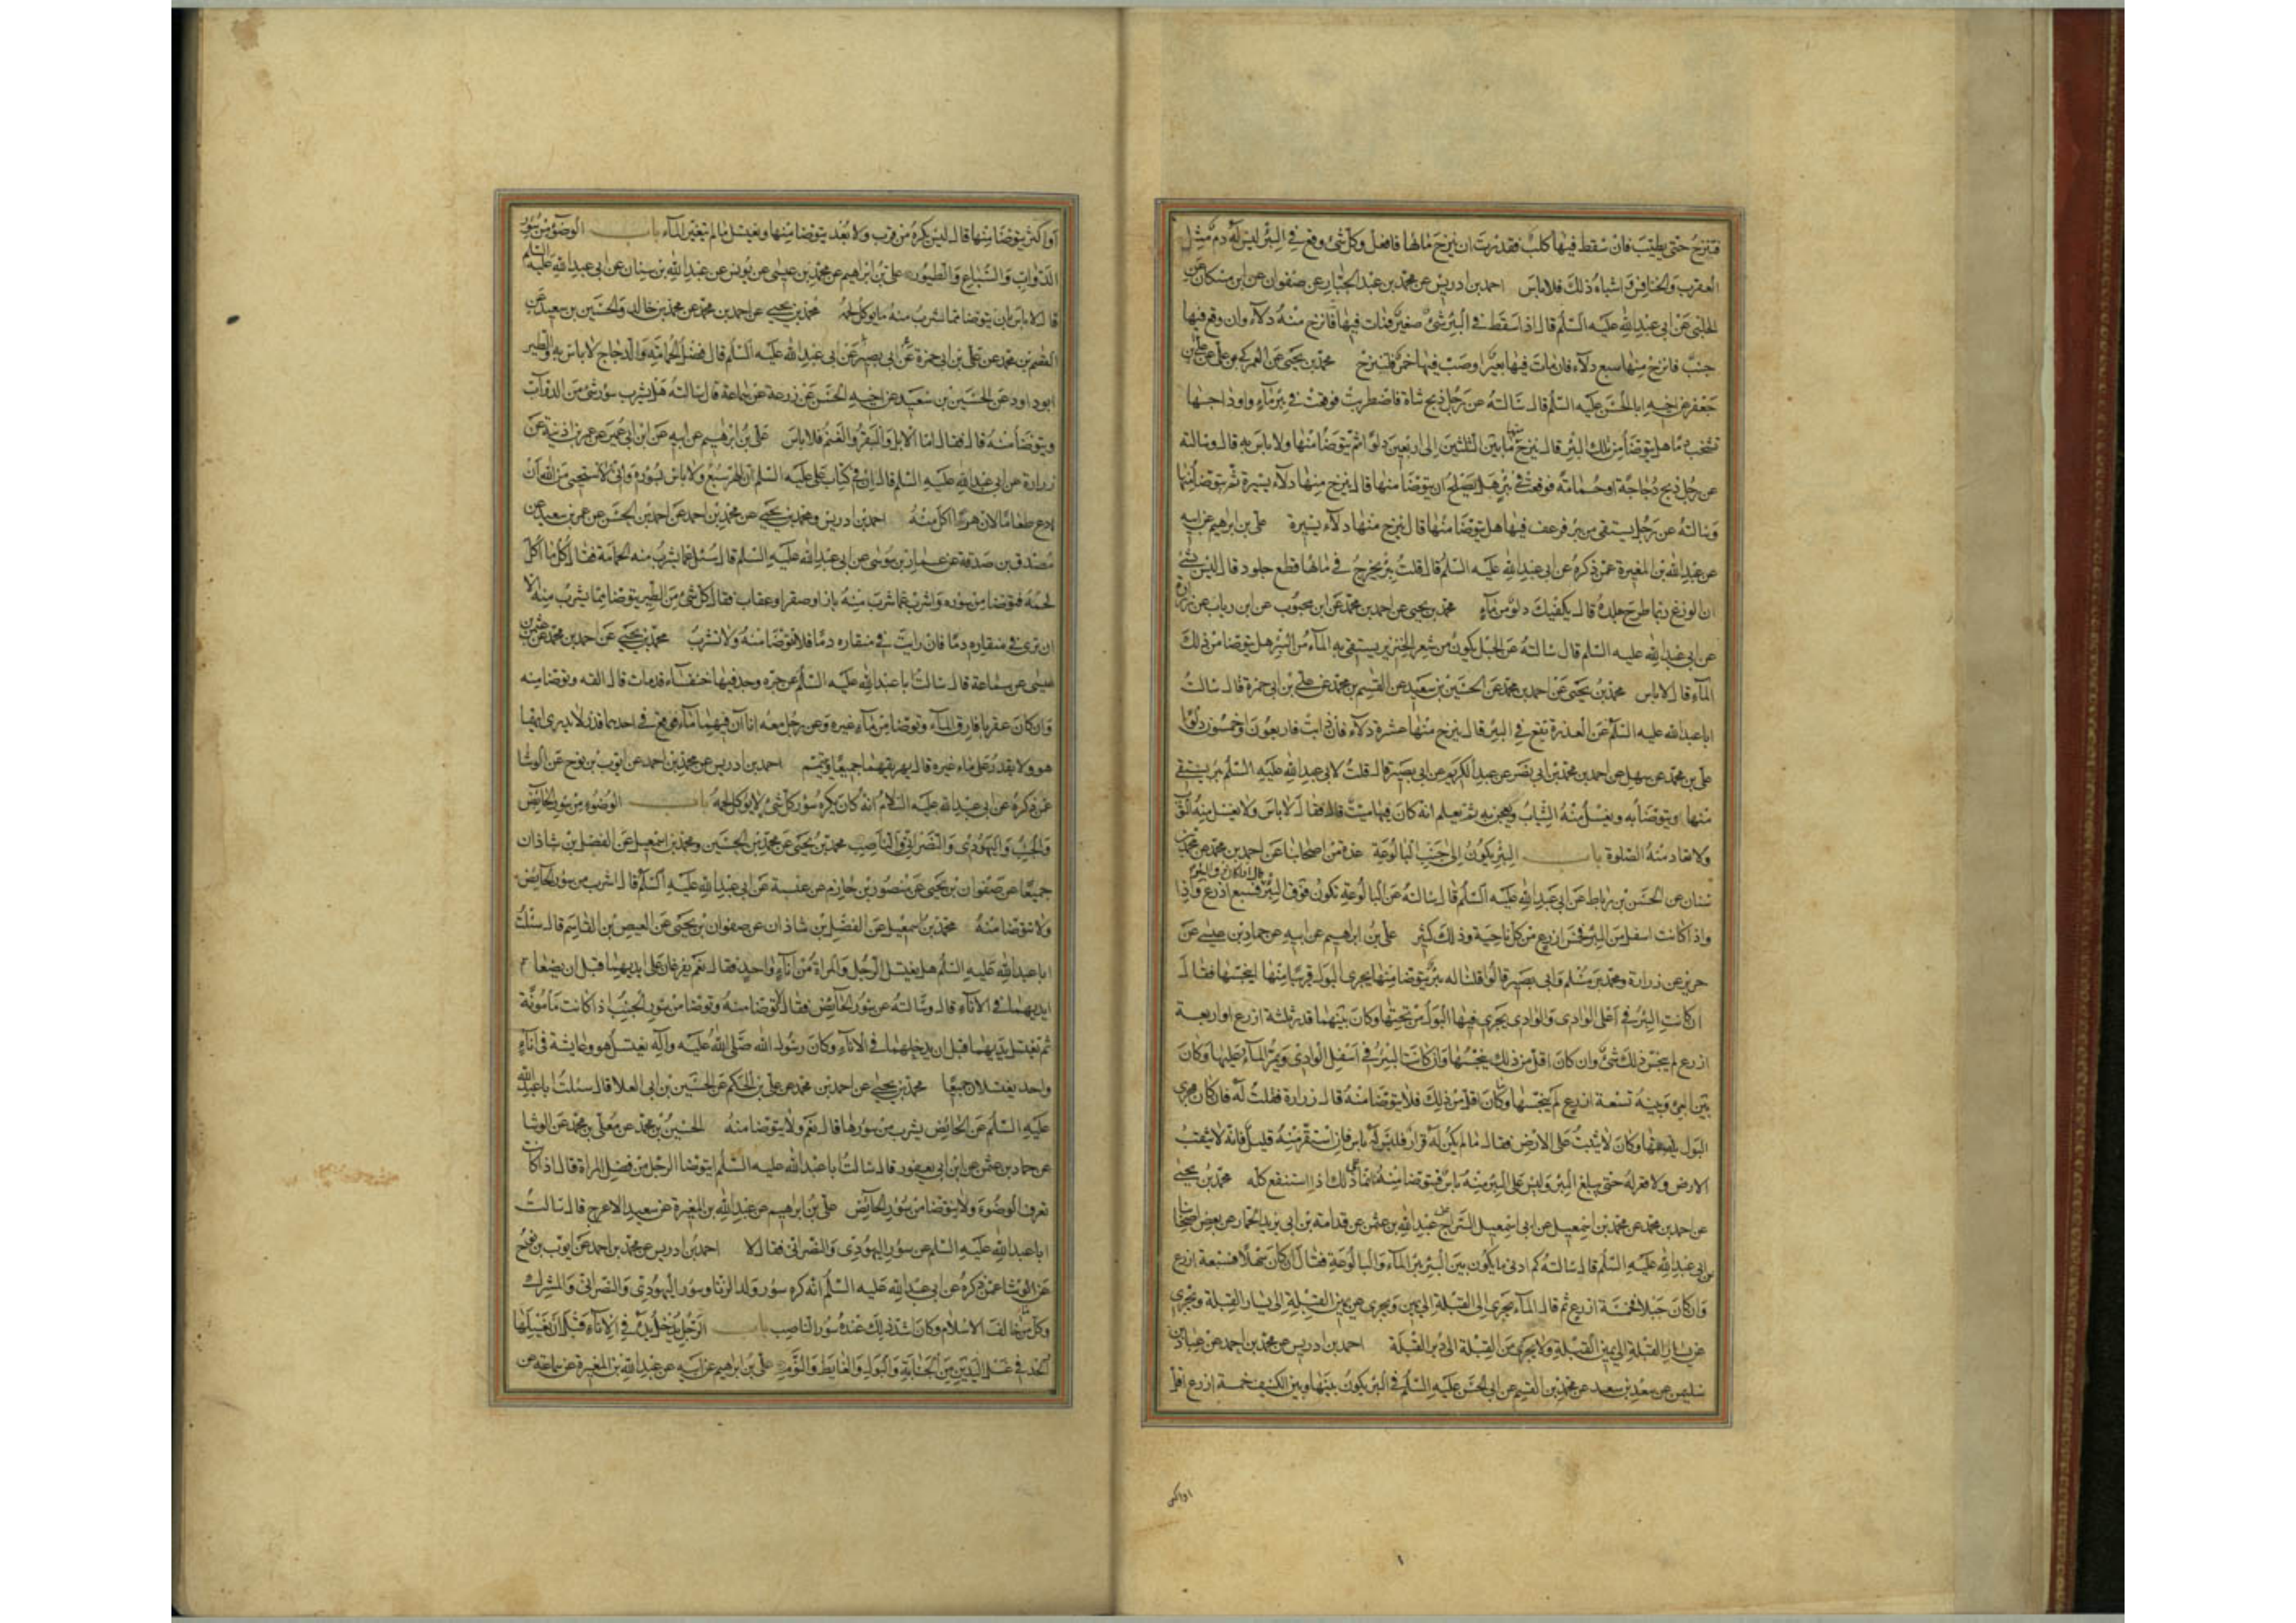 فتنزح حتى يطيب فان سقط فيها كلب فقدرت ان ينزح ماؤها فافعل وكل شئ وقع في البئر ليس له دم مثل
العقرب والخنافس واشباه ذلك فلا باس احمد بن ادريس عن محمد بن عبد الجبار عن صفوان عن ابن مسكان عن
الحلبي عن ابي عبد الله عليه السلم قال اذا سقط في البئر شئ صغير فمات فيها فانزح منه دلاء وان وقع فيها
جنب فانزح منها سبع دلاء فان مات فيها بعير او صب فيها خمر فلينزح محمد بن يحيى عن العمركي بن علي عن علي بن
جعفر عن اخيه ابا الحسن عليه السلم قال سالته عن رجل ذبح شاة فاضطربت فوقعت في بئر ماء واوداجها
تشخب دما هل يتوضا من تلك البئر قال ينزح منها ما بين الثلثين الى اربعين دلوا ثم يتوضا منها ولا باس به قال وسالته
عن رجل ذبح دجاجة او حمامة فوقعت في بئر هل يصلح ان يتوضا منها قال ينزح منها دلاء يسيرة ثم يتوضا منها
وسالته عن رجل يستقى من بئر فرعف فيها هل يتوضا منها قال ينزح منها دلاء يسيرة علي بن ابراهيم عن ابيه
عن عبد الله بن المغيرة عمن ذكره عن ابي عبد الله عليه السلم قال قلت بئر يخرج في مائها قطع جلود قال ليس بشئ
ان الوزغ ربما طرح جلده قال يكفيك دلو من ماء محمد بن يحيى عن احمد بن محمد عن ابن محبوب عن ابن رياب عن زرارة
عن ابي عبد الله عليه السلم قال سالته عن الحبل يكون من شعر الخنزير يستقى به الماء من البئر هل يتوضا من ذلك
الماء قال لا باس محمد بن يحيى عن احمد بن محمد عن الحسين بن سعيد عن القسم بن محمد عن علي بن ابي حمزة قال سالت
ابا عبد الله عليه السلم عن العذرة تقع في البئر قال ينزح منها عشرة دلاء فان ذابت فاربعون او خمسون دلوا
علي بن محمد عن سهل عن احمد بن محمد بن ابي نصر عن عبد الكريم عن ابي بصير قال قلت لابي عبد الله عليه السلم بئر يستقى
منها ويتوضا به ويغسل منه الثياب ويعجن به ثم يعلم انه كان فيها ميت قال فقال لا باس ولا يغسل منه الثوب
ولا تعاد منه الصلوة باب البئر يكون الى جنب البالوعة عدة من اصحابنا عن احمد بن محمد عن محمد بن
سنان عن الحسن بن رباط عن ابي عبد الله عليه السلم قال سالته عن البالوعة تكون فوق البئر فسبع اذرع واذا
واذا كانت اسفل من البئر فخمس اذرع من كل ناحية وذلك كثير علي بن ابراهيم عن ابيه عن حماد بن عيسى عن
حريز عن زرارة ومحمد بن مسلم وابي بصير قالوا قلنا له بئر يتوضا منها يجري البول قريبا منها اينجسها فقال
ان كانت البئر في اعلى الوادى والوادى يجري فيها البول من تحتها وكان بينهما قدر ثلثة اذرع او اربعة
اذرع لم ينجس ذلك شئ وان كان اقل من ذلك ينجسها وان كانت البئر في اسفل الوادى ويمر الماء عليها وكان
بين البئر وبينه تسعة اذرع لم ينجسها وما كان اقل من ذلك فلا يتوضا منه قال زرارة فقلت له فان كان مجرى
البول يلصقها وكان لا يثبت على الارض فقال ما لم يكن له قرار فليس به باس فان استقر منه قليل فانه لا يثقب
الارض ولا قعر له حتى يبلغ البئر وليس على البئر منه باس فيتوضا منه انما ذلك اذا استنقع كله محمد بن يحيى
عن احمد بن محمد عن محمد بن اسمعيل عن ابي اسمعيل السراج عبد الله بن عثمن عن قدامة بن ابي يزيد الحمار عن بعض اصحابنا
عن ابي عبد الله عليه السلم قال سالته كم ادنى ما يكون بين البئر بئر الماء والبالوعة فقال ان كان سهلا فسبعة اذرع
وان كان جبلا فخمسة اذرع ثم قال الماء يجري الى القبلة الى يمين ويجري عن يمين القبلة الى يسار القبلة ويجري
عن يسار القبلة الى يمين القبلة ولا يجري من القبلة الى دبر القبلة احمد بن ادريس عن محمد بن احمد عن عباد بن
سليمن عن سعد بن سعد عن محمد بن القسم عن ابي الحسن عليه السلم في البئر يكون بينها وبين الكنيف خمسة اذرع اقل
او اكثر
او اكثر يتوضا منها قال ليس يكره من قرب ولا بعد يتوضا منها ويغتسل ما لم يتغير الماء باب الوضوء من سؤر
الدواب والسباع والطيور علي بن ابراهيم عن محمد بن عيسى عن يونس عن عبد الله بن سنان عن ابي عبد الله عليه السلم
قال لا باس بان يتوضا مما شرب منه ما يوكل لحمه محمد بن يحيى عن احمد بن محمد عن محمد بن خالد والحسين بن سعيد عن
القسم بن محمد عن علي بن ابي حمزة عن ابي بصير عن ابي عبد الله عليه السلم قال فضل الحمامة والدجاج لا باس به والطير
ابو داود عن الحسين بن سعيد عن اخيه الحسن عن زرعة عن سماعة قال سالته هل يشرب سؤر شئ من الدواب
ويتوضا منه قال فقال اما الابل والبقر والغنم فلا باس علي بن ابرهيم عن ابيه عن ابن ابي عمير عن عمر بن اذينة عن
زرارة عن ابي عبد الله عليه السلم قال ان في كتاب علي عليه السلم ان الهر سبع ولا باس بسؤره واني لاستحيى من الله ان
ادع طعاما لان هرا اكل منه احمد بن ادريس ومحمد بن يحيى عن محمد بن احمد عن احمد بن الحسن عن عمرو بن سعيد عن
مصدق بن صدقة عن عمار بن موسى عن ابي عبد الله عليه السلم قال سئل عما يشرب منه الحمامة فقال كل ما اكل
لحمه فتوضا من سؤره واشرب عما شرب منه باز او صقر او عقاب فقال كل شئ من الطير يتوضا مما يشرب منه الا
ان ترى في منقاره دما فان رايت في منقاره دما فلا توضا منه ولا تشرب محمد بن يحيى عن احمد بن محمد عن عثمن بن
عيسى عن سماعة قال سالت ابا عبد الله عليه السلم عن جرة وجد فيها خنفساء قد مات قال القه وتوضا منه
وان كان عقربا فارق الماء وتوضا من ماء غيره وعن رجل معه اناان فيهما ماء فوقع في احدهما قذر لا يدرى ايهما
هو ولا يقدر على ماء غيره قال يهريقهما جميعا ويتيمم احمد بن ادريس عن محمد بن احمد عن ايوب بن نوح عن الوشا
عمن ذكره عن ابي عبد الله عليه السلام انه كان يكره سؤر كل شئ لا يوكل لحمه باب الوضوء من سؤر الحائض
والجنب واليهودى والنصراني والناصب محمد بن يحيى عن محمد بن الحسين ومحمد بن اسمعيل عن الفضل بن شاذان
جميعا عن صفوان بن يحيى عن منصور بن حازم عن عنبسة عن ابي عبد الله عليه السلم قال اشرب من سؤر الحائض
ولا تتوضا منه محمد بن اسمعيل عن الفضل بن شاذان عن صفوان بن يحيى عن العيص بن القاسم قال سئلت
ابا عبد الله عليه السلم هل يغتسل الرجل والمراة من اناء واحد فقال نعم يفرغان على ايديهما قبل ان يضعا
ايديهما في الاناء قال وسالته عن سؤر الحائض فقال لا توضا منه وتوضا من سؤر الجنب اذا كانت مأمونة
ثم تغتسل يديهما قبل ان يدخلهما في الاناء وكان رسول الله صلى الله عليه وآله يغتسل هو وعايشة في اناء
واحد يغتسلان جميعا محمد بن يحيى عن احمد بن محمد عن علي بن الحكم عن الحسين بن ابي العلا قال سئلت ابا عبد الله
عليه السلم عن الحائض يشرب من سؤرها قال نعم ولا يتوضا منه الحسين بن محمد عن معلى بن محمد عن الوشا
عن حماد بن عثمن عن ابن ابي يعفور قال سالت ابا عبد الله عليه السلم ايتوضا الرجل من فضل المراة قال اذا كانت
تعرف الوضوء ولا يتوضا من سؤر الحائض علي بن ابرهيم عن عبد الله بن المغيرة عن سعيد الاعرج قال سالت
ابا عبد الله عليه السلم عن سؤر اليهودى والنصراني فقال لا احمد بن ادريس عن محمد بن احمد عن ايوب بن نوح
عن الوشا عمن ذكره عن ابي عبد الله عليه السلم انه كره سؤر ولد الزنا وسؤر اليهودى والنصراني والمشرك
وكل من خالف الاسلام وكان اشد ذلك عنده سؤر الناصب باب الرجل يدخل يده في الاناء قبل ان يغسلها
الحد في غسل اليدين من الجنابة والبول والغايط والنوم علي بن ابراهيم عن ابيه عن عبد الله بن المغيرة عن سماعة عن